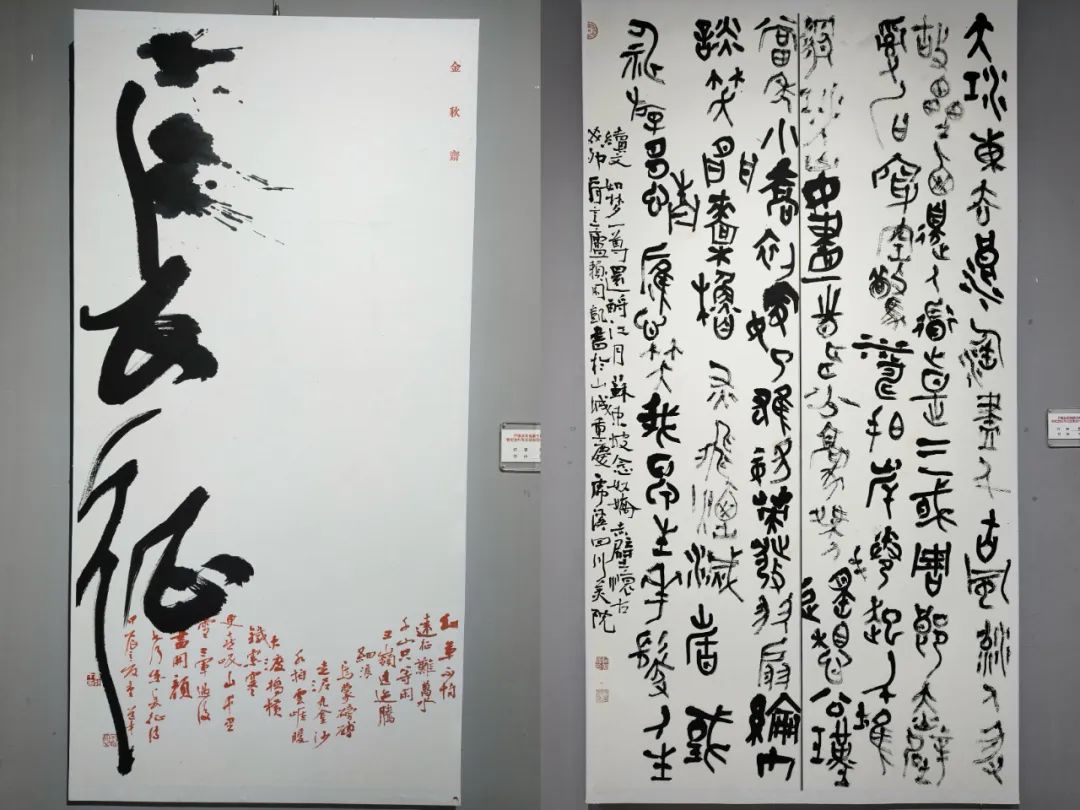 長征
金秋齋
紅軍不怕
遠征難萬水
千山只等閑
五嶺逶迤騰
細浪
烏蒙磅礴
走泥丸金沙
水拍雲崖暖
大渡橋橫
鐵索寒
更喜岷山千里
雪三軍過後
盡開顏
長征詩
甲辰
大江東去浪淘盡千古風流人物
故壘西邊人道是三國周郎赤壁
穿空驚濤拍岸
江山如畫一時多少豪傑遙想公瑾
當年小喬初嫁了雄姿英發羽扇綸巾
談笑間檣櫓灰飛煙滅故國
神游多情應笑我早生華髮人生
續文 如夢一尊還酹江月 蘇東坡念奴嬌赤壁懷古
癸卯 書於山城重慶虎溪四川美院